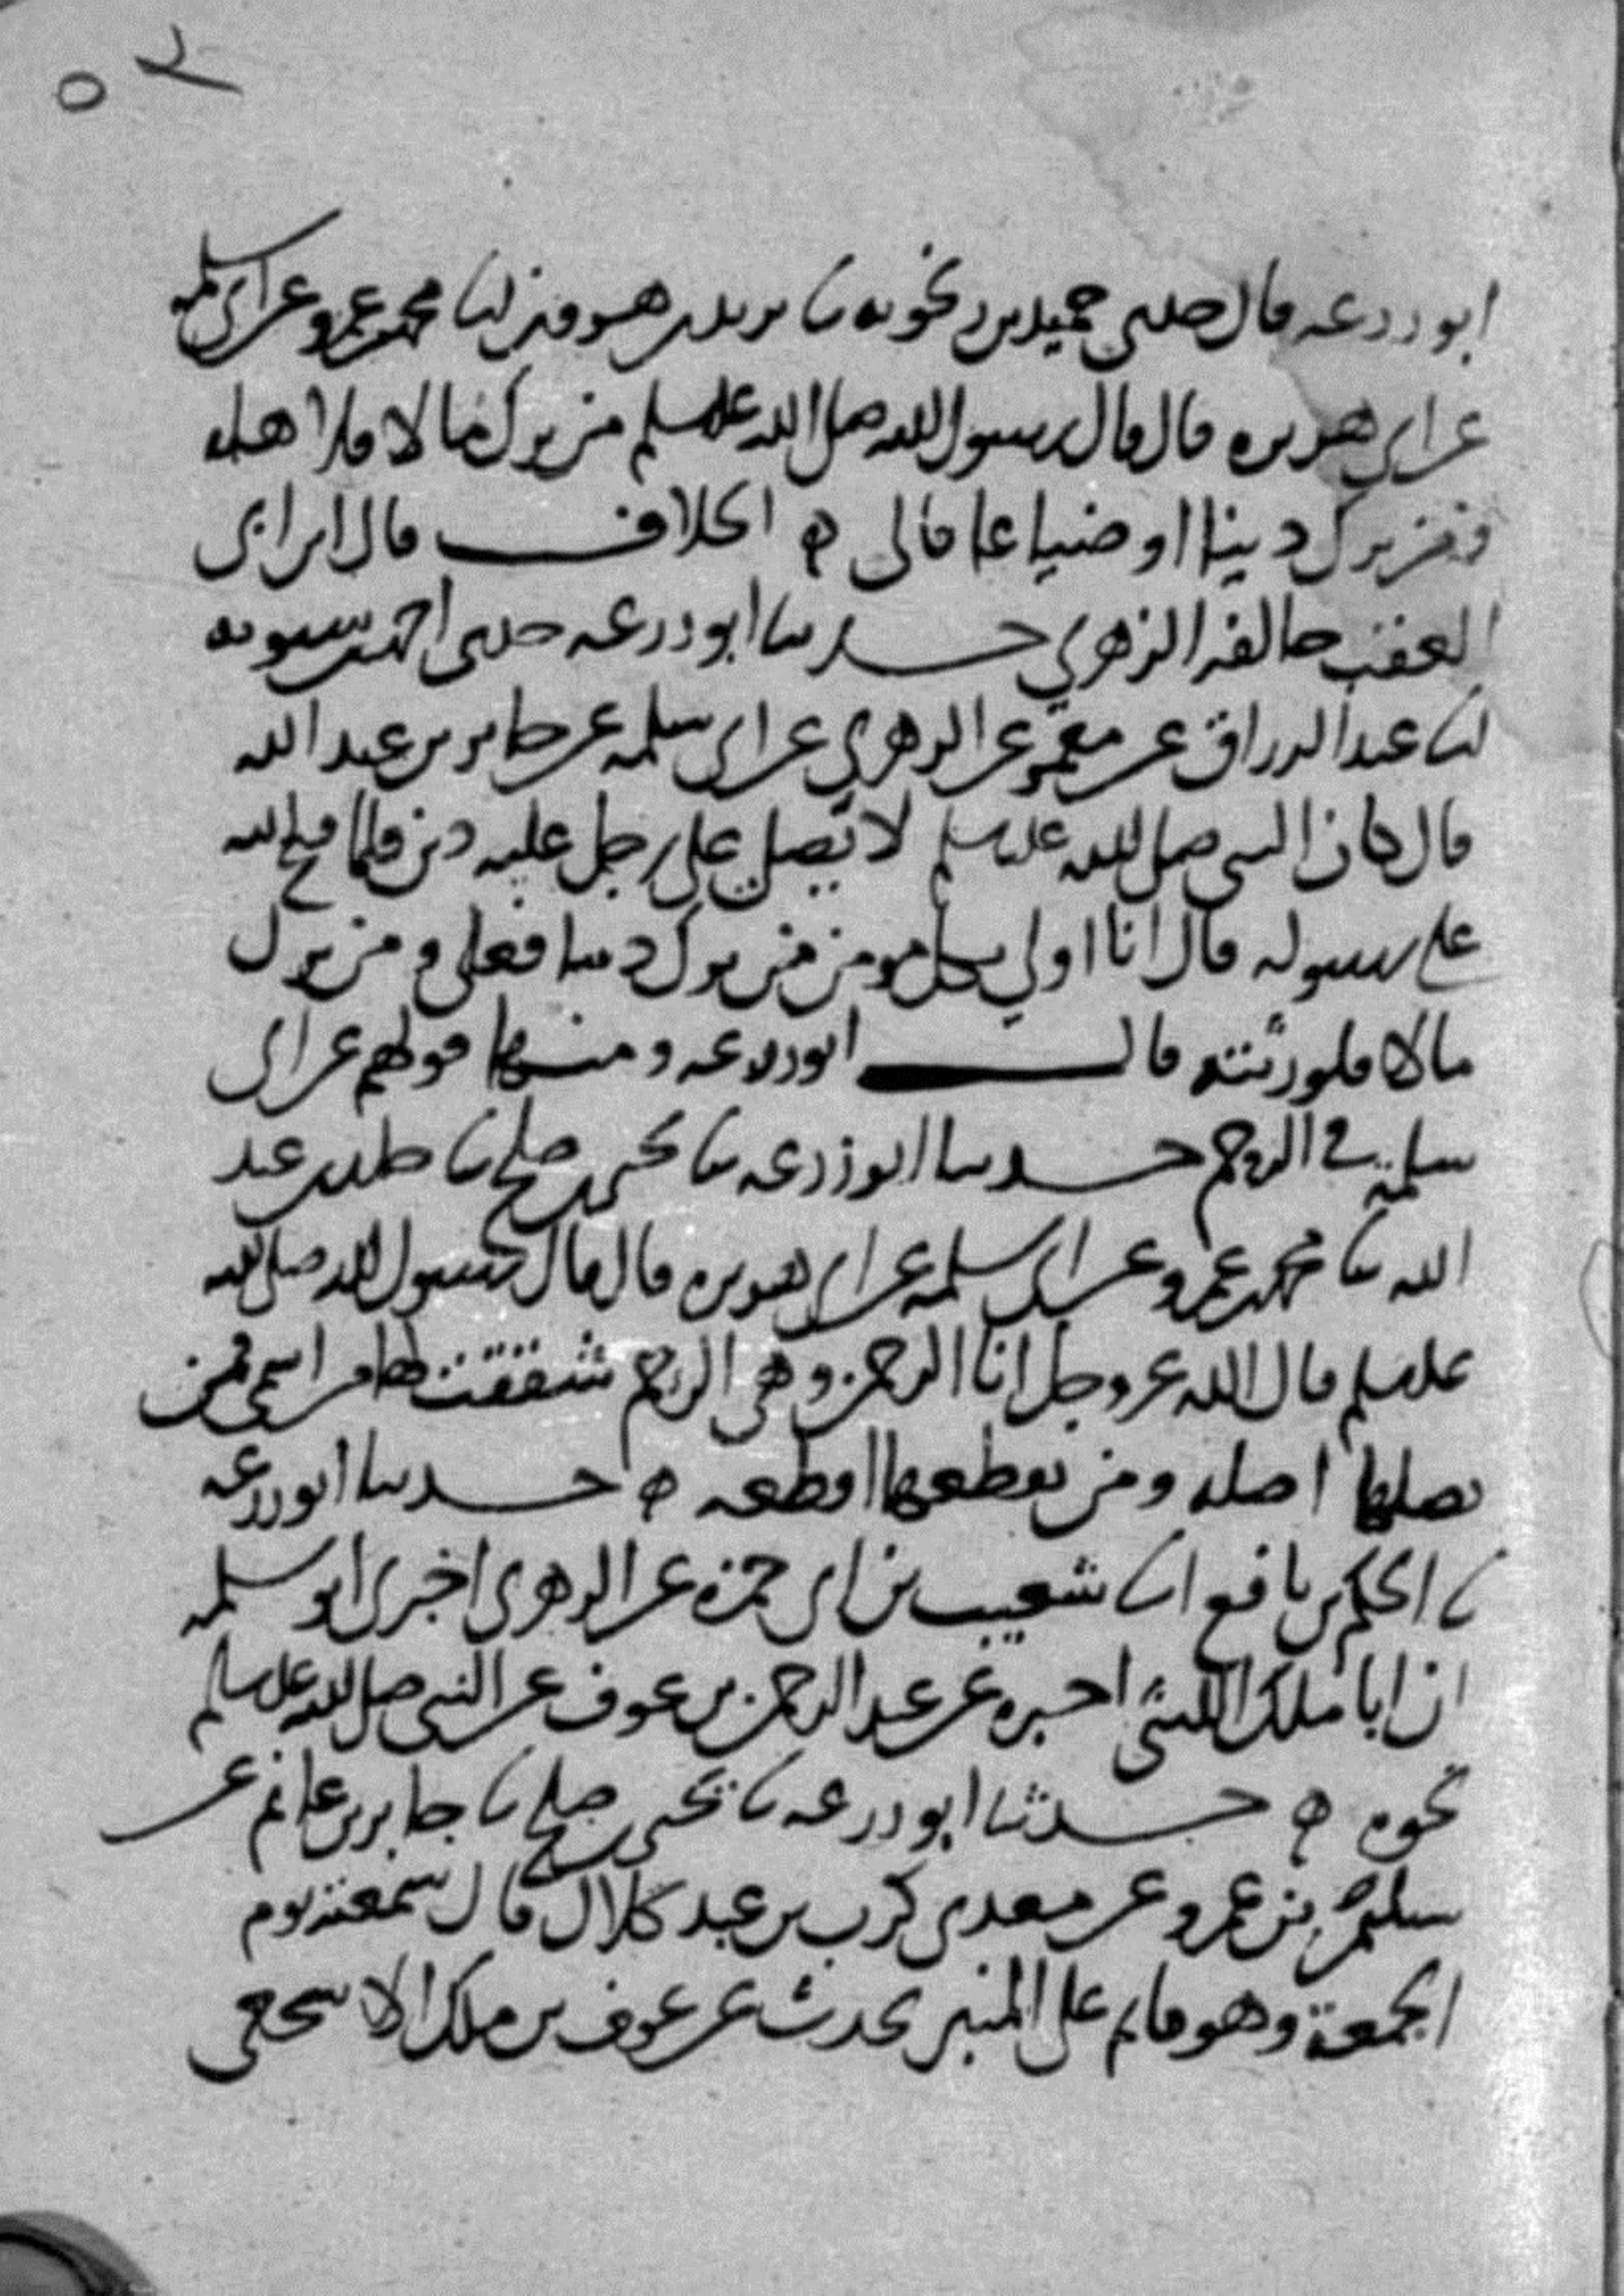 ٥٢
ابو زرعه قال حدثنى حميد بن زنجويه نا يزيد بن هرون انا محمد بن عمرو عن ابى سلمه
عن ابي هريره قال قال رسول الله صلى الله عليه وسلم من ترك مالا فلاهله
ومن ترك دينا او ضياعا فالى ه الخلاف قال ابن ابى
العقب خالفه الزهري حدثنا ابو زرعه حدثنى احمد بن شبويه
نا عبد الرزاق عن معمر عن الزهري عن ابى سلمه عن جابر بن عبد الله
قال كان النبى صلى الله عليه وسلم لا يصلي على رجل عليه دين فلما فتح الله
على رسوله قال انا اولي بكل مومن من ترك دينا فعلى ومن ترك
مالا فلورثته قال ابو زرعه ومنها قولهم عن ابى
سلمة في الرحم حدثنا ابو زرعه نا يحيى بن صلح نا خلد بن عبد
الله نا محمد بن عمرو عن ابى سلمه عن ابى هريره قال قال رسول الله صلى الله
عليه وسلم قال الله عز وجل انا الرحمن وهى الرحم شققت لها من اسمى فمن
يصلها اصله ومن يقطعها اقطعه ه حدثنا ابو زرعه
نا الحكم بن نافع انا شعيب بن ابى حمزه عن الزهرى اخبرنى ابو سلمه
ان ابا ملك الليثى اخبره عن عبد الرحمن بن عوف عن النبى صلى الله عليه وسلم
نحوه ه حدثنا ابو زرعه نا يحيى بن صلح نا جابر بن غانم عن
سليم بن عمرو عن معدى كرب بن عبد كلال قال سمعته يوم
الجمعة وهو قايم على المنبر يحدث عن عوف بن ملك الاشجعى